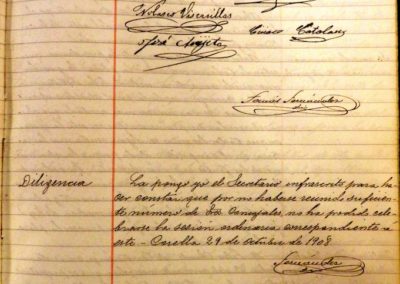 Wolasco Viscasillas
José Argita
Ciriaco Catalan
Tomás Fernández
Diligencia
La pongo yo el Secretario infrascrito para ha-
cer constar que por no haberse reunido suficien-
te número de Sres Concejales no ha podido cele-
brarse la sesión ordinaria correspondiente á
este - Corella 29 de Octubre de 1908
Fernández